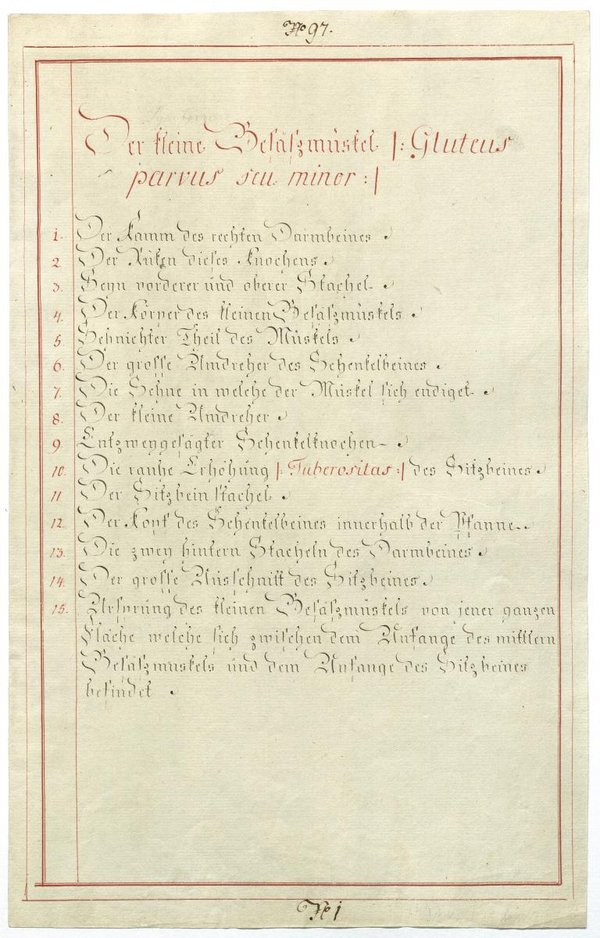 No 97.
Der kleine Gesäßmuskel /: Gluteus
parvus seu minor :/
1. Der Kamm des rechten Darmbeines.
2. Der Rüken dieses Knochens.
3. Seyn vorderer und oberer Stachel.
4. Der Körper des kleinen Gesäßmuskels.
5 Sehnichter Theil des Muskels.
6. Der grosse Umdreher des Schenkelbeines.
7. Die Sehne in welche der Muskel sich endiget.
8. Der kleine Umdreher.
9. Entzweygesägter Schenkelknochen.
10. Die rauhe Erhöhung /: Tuberositas :/ des Sitzbeines.
11 Der Sitzbeinstachel.
12. Der Kopf des Schenkelbeines innerhalb der Pfanne.
13. Die zwey hintern Stacheln des Darmbeines.
14. Der grosse Ausschnitt des Sitzbeines.
15. Ursprung des kleinen Gesäßmuskels von jener ganzen
Fläche welche sich zwischen dem Anfange des mittlern
Gesäßmuskels und dem Anfange des Sitzbeines
befindet.
No 1